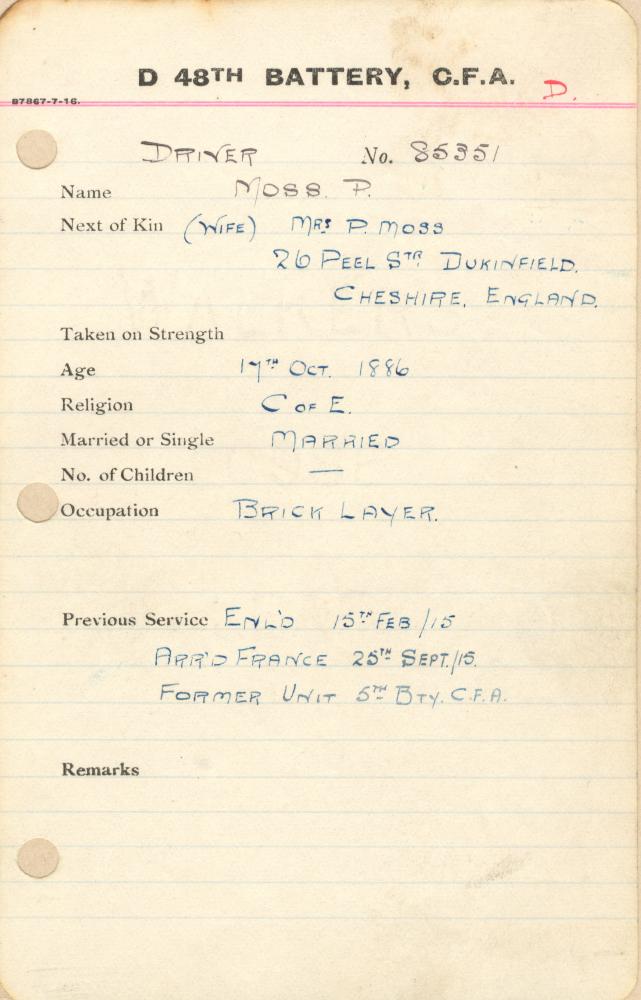 D 48TH BATTERY, C.F.A.
D.
87867-7-16.
DRIVER No. 85351
Name MOSS. P.
Next of Kin (WIFE) MRS P. MOSS
26 PEEL STR DUKINFIELD.
CHESHIRE, ENGLAND.
Taken on Strength
Age 17TH OCT. 1886
Religion C OF E.
Married or Single MARRIED
No. of Children —
Occupation BRICK LAYER.
Previous Service ENL'D 15TH FEB/15
ARR'D FRANCE 25TH SEPT./15.
FORMER UNIT 5TH BTY. C.F.A.
Remarks